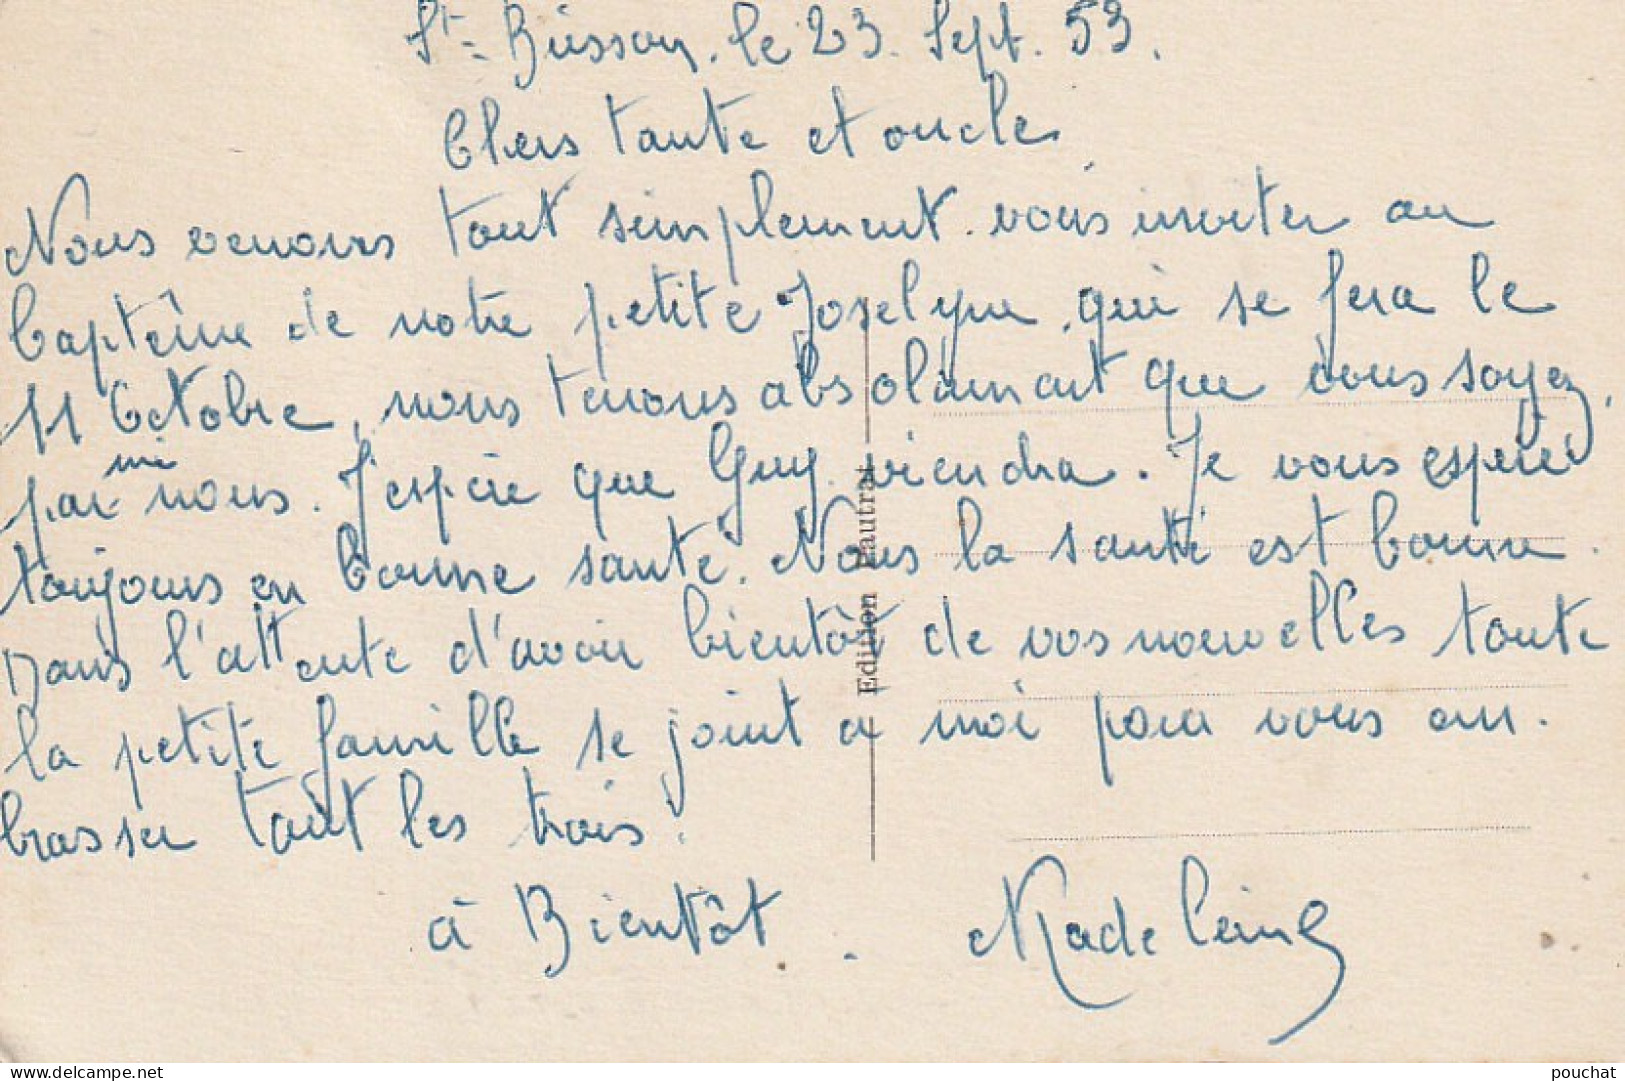 St- Brisson, le 23. Sept. 53.
Chers tante et oncle
Nous venons tout simplement vous inviter au
baptême de notre petite Joselyne, qui se fera le
11 Octobre, nous tenons absolument que vous soyez,
parmi nous. J'espère que Guy viendra. Je vous espère
toujours en bonne santé. Nous la santé est bonne.
Dans l'attente d'avoir bientôt de vos nouvelles toute
la petite famille se joint a moi pour vous em-
brasser tout les trois.
à Bientôt. Madeleine
Edition Pautrat
www.delcampe.net
pouchat